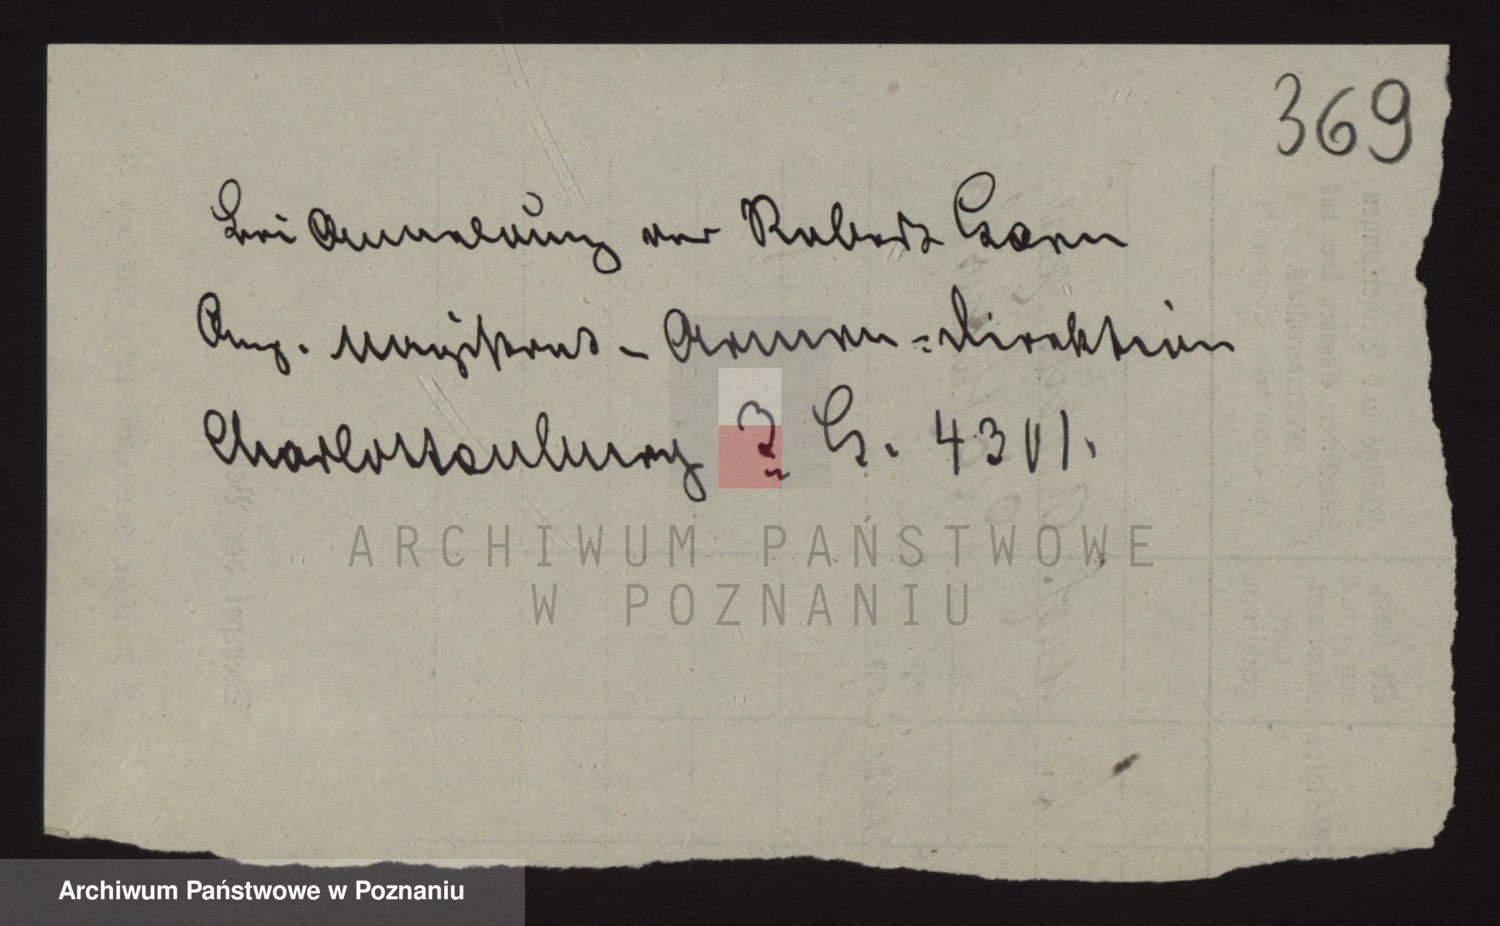 369
Bei Anmeldung der Robert
Ang. Magistrat - Armen = Direktion
Charlottenburg 3 G. 43
ARCHIWUM PAŃSTWOWE
W POZNANIU
Archiwum Państwowe w Poznaniu